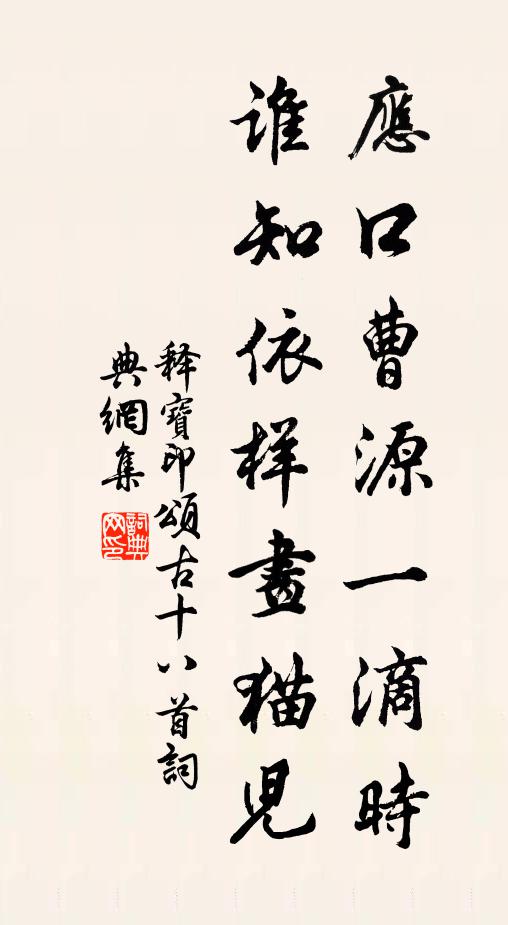 應口曹源一滴時
誰知依样畫猫児
释寶印頌古十八首詞
典網集
詞典
网印